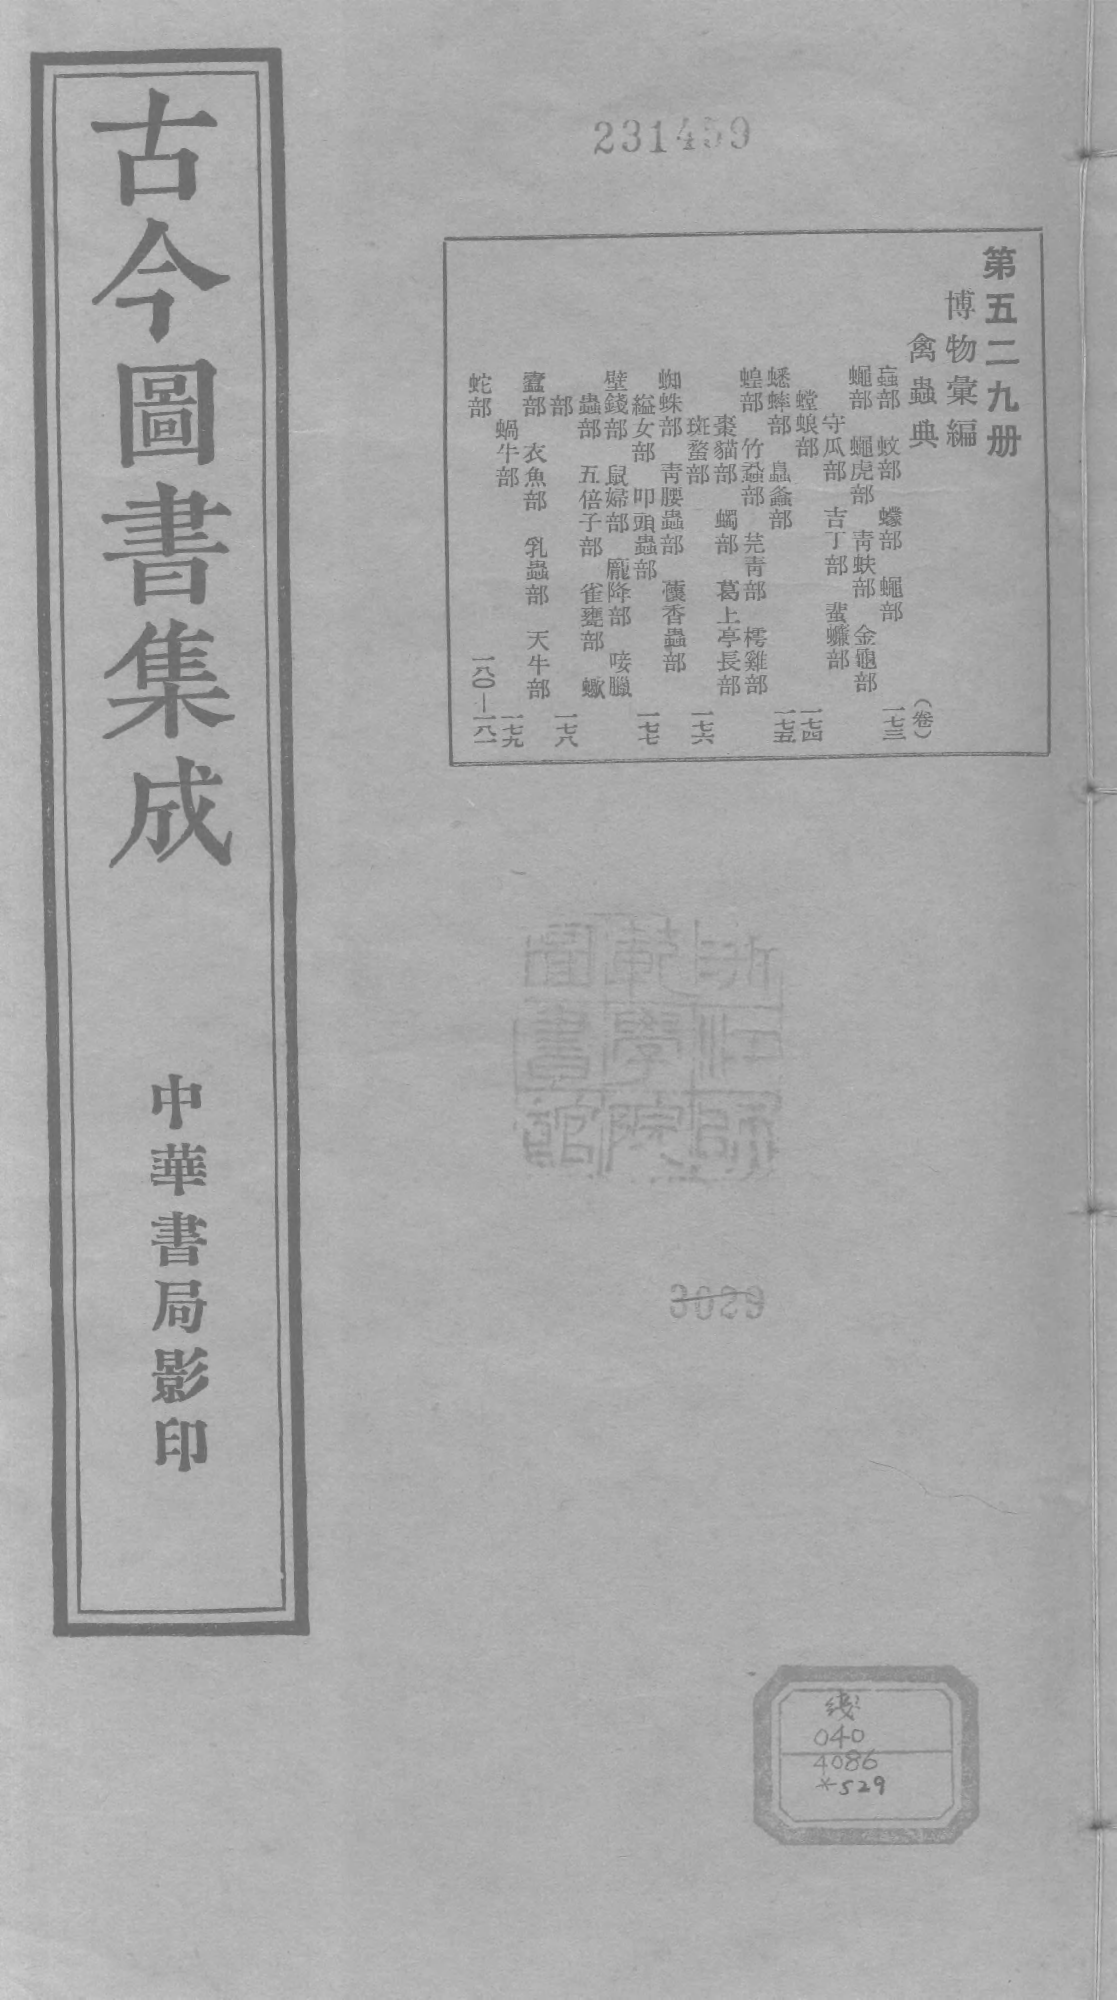 古今圖書集成
中華書局影印
231459
第五二九册
博物彙編
禽蟲典
(卷)
蝱部 蚊部 蠓部 蠅部 一七三
蠅部 蠅虎部 青蚨部 金龜部
守瓜部 吉丁部 蜚蠊部
螳蜋部 一七四
蟋蟀部 螽部 一七五
蝗部 竹蝨部 芫青部 樗雞部
棗貓部 蠋部 葛上亭長部
斑蝥部 一七六
蜘蛛部 青腰蟲部 蘹香蟲部
縊女部 叩頭蟲部 一七七
壁錢部 鼠婦部 龐降部 唼臘
蟲部 五倍子部 雀甕部 蠍
部 一七八
蠹部 衣魚部 乳蟲部 天牛部
蝸牛部 一七九
蛇部 一八〇—一八一
浙江師範學院圖書館
3029
线
040
4086
*529